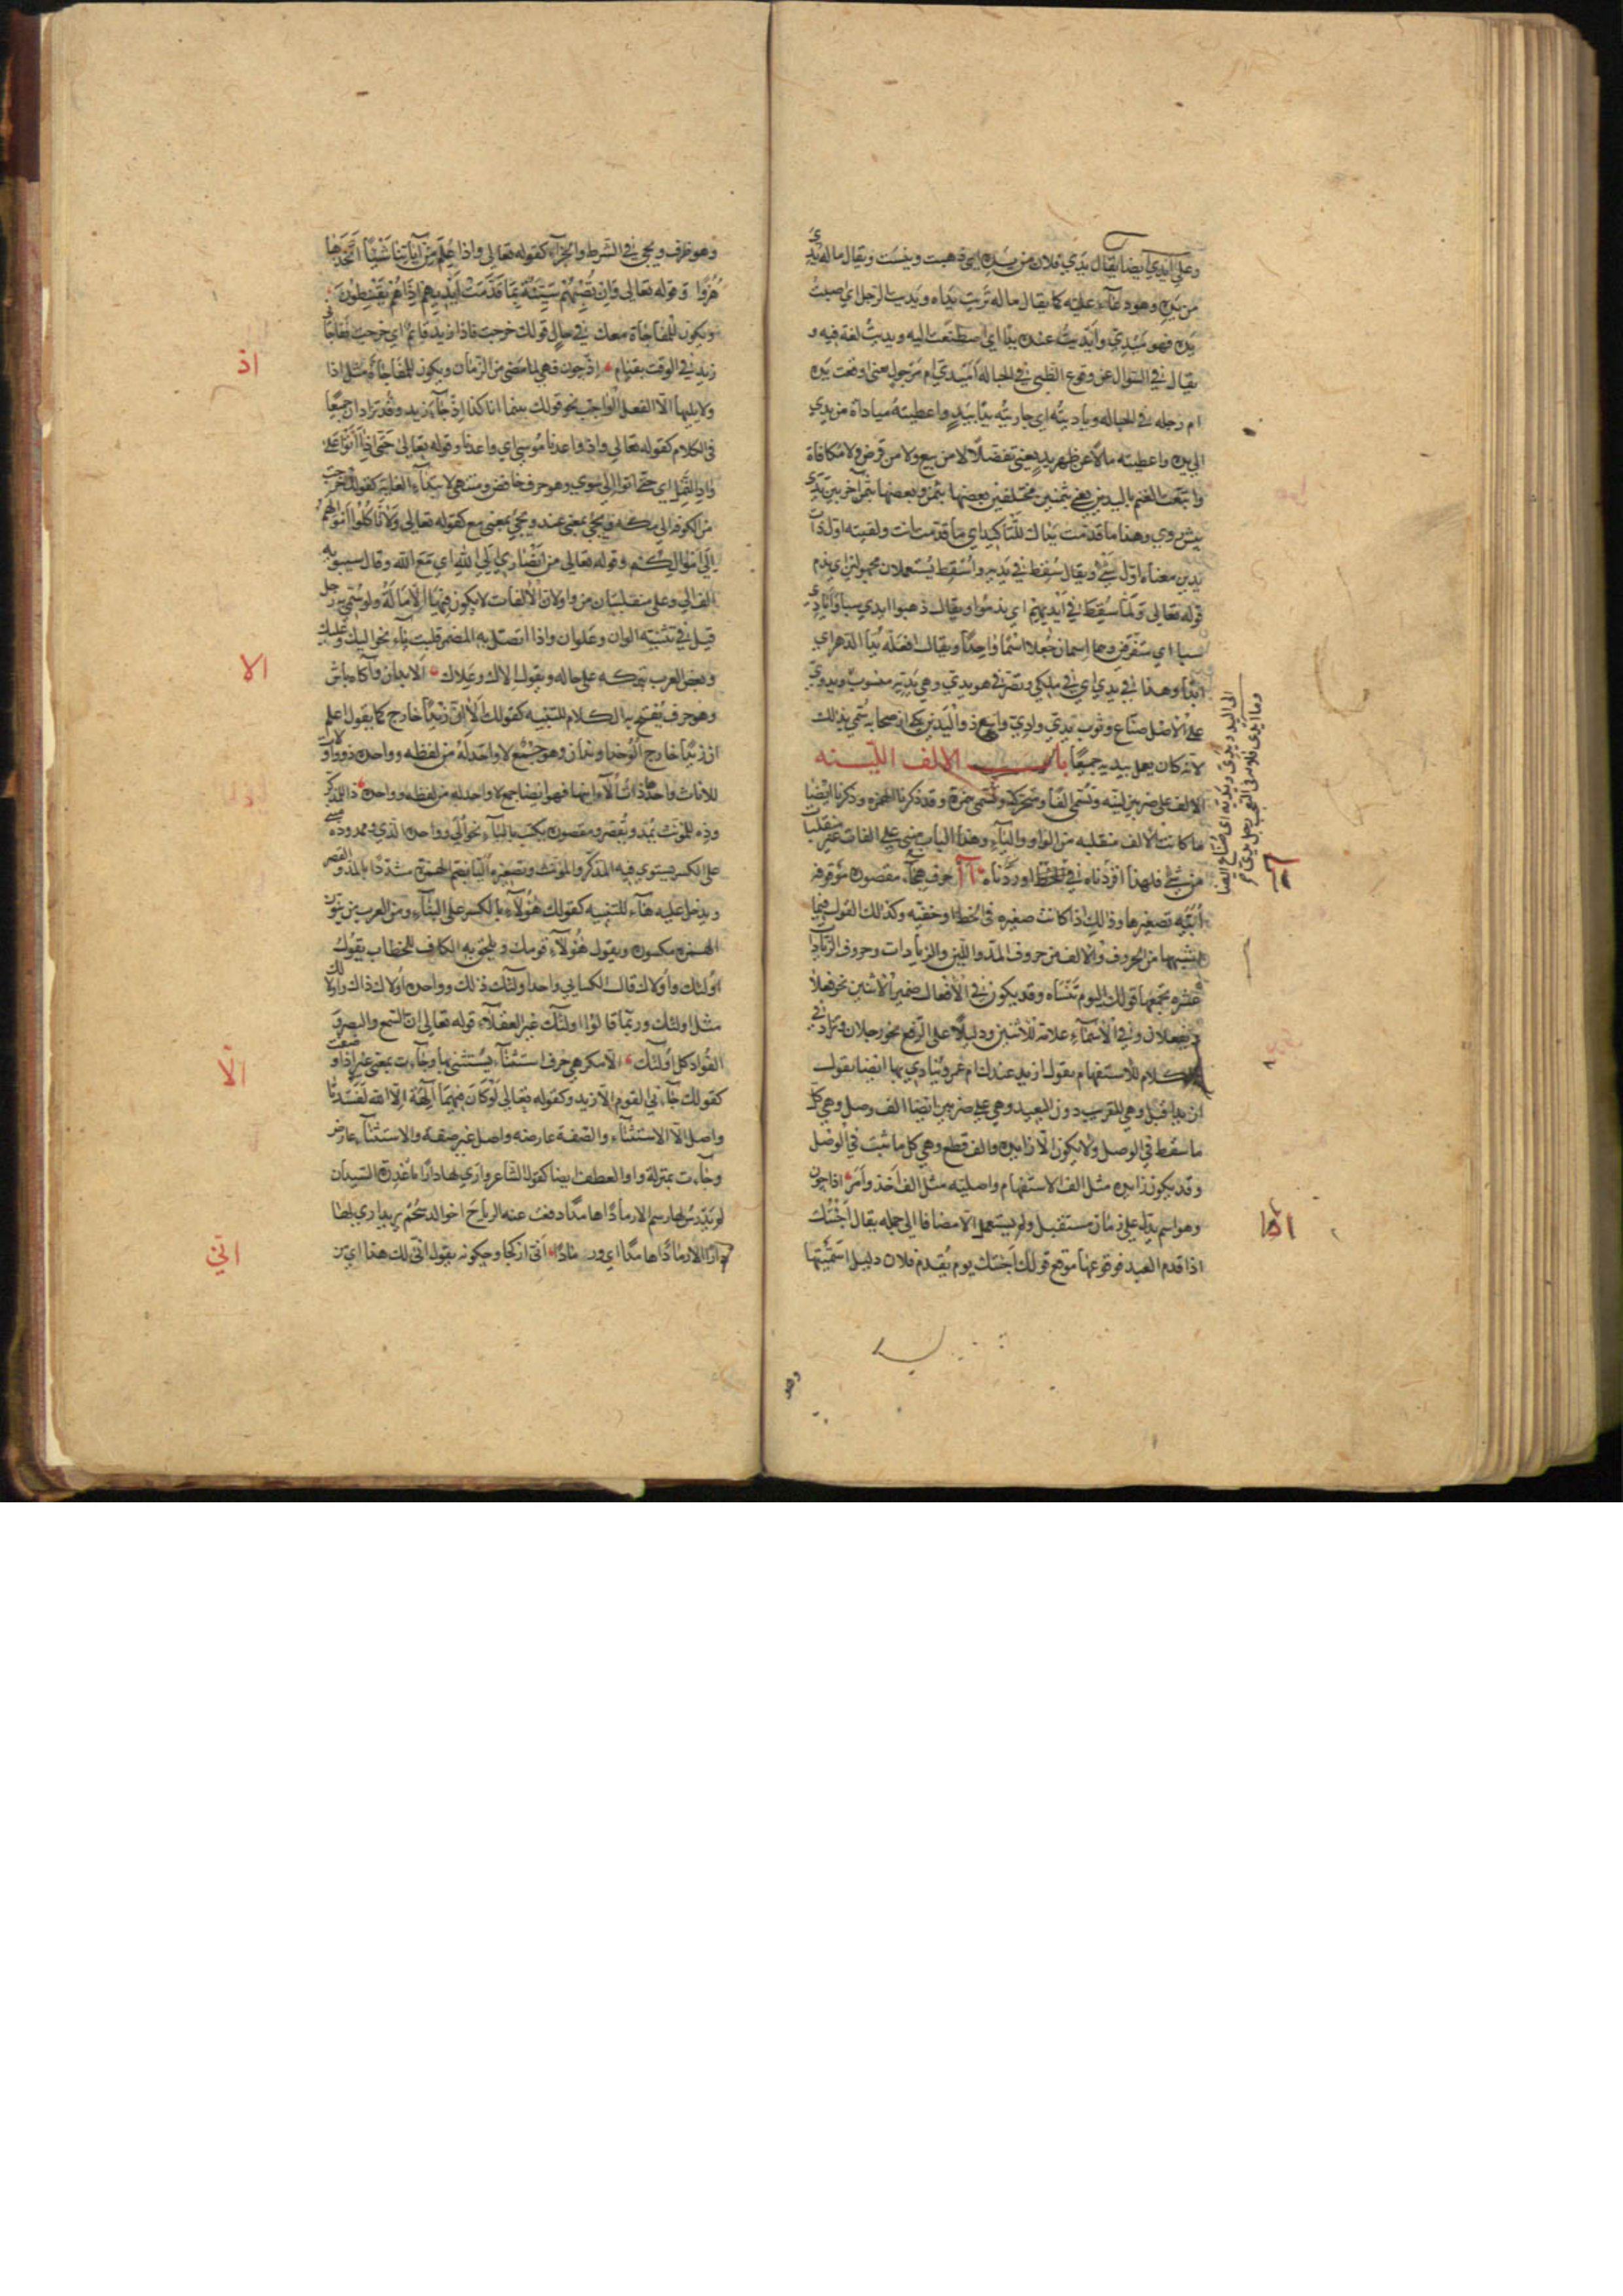 وعلى ايدي ايضا يقال يدي فلان من يده اي ذهبت ويبست ويقال ما له يدي
من يده وهو دعاء عليه كما يقال ما له تربت يداه ويديت الرجل اي اصبت
يده فهو ميدي وايديت عنده يدا اي اصطنعت اليه ويديت لغة فيه و
يقال في السؤال عن وقوع الظبي في الحبالة اميدي ام مرجول يعني اوقعت يده
ام رجله في الحباله وياديته اي جازيته يدا بيد واعطيته مياداة من يدي
الى يده واعطيته مالا عن ظهر يد يعني تفضلا لا من بيع ولا من قرض ولا مكافاة
وابتعت الغنم باليدين يعني بثمنين مختلفين بعضها بثمن وبعضها بثمن آخر بين يدي
پيش روي وهذا ما قدمت يداك للتاكيد اي ما قدمت انت ولقيته اول ذات
يدين معناه اول شيء ويقال سقط في يديه واسقط يستعملان مجهولين اي ندم
قوله تعالى ولما سقط في ايديهم اي ندموا ويقال ذهبوا ايدي سبا وايادي
سبا اي متفرقين وهما اسمان جعلا اسما واحدا ويقال لا افعله يد الدهر اي
ابدا وهذا في يدي اي في ملكي وتصرفي هو يدي وهي يدية منسوب ويدوي
على الاصل صناع وثوب يدي وادي واسع ذو اليدين يكي از صحابه سمي بذلك
لانه كان يعمل بيديه جميعا باب الالف اللينه
الالف على ضربين لينه وتسمى الفا ومتحركة وتسمى همزة وقد ذكرنا الهمزه وذكرنا ايضا
ما كانت الالف منقلبه من الواو والياء وهذا الباب مبني على الفات غير منقلبات
من شيء فلهذا افردناه آ آ حرف هجاء مقصوره موقوفه
تصغيرها اييه وذلك اذا كانت صغيره في الخط وخفيه وكذلك القول فيما
يشبهها من الحروف والالف من حروف المد واللين والزيادات وحروف الزيادات
عشره يجمعها قولك اليوم تنساه وقد يكون في الافعال ضمير الاثنين نحو فعلا
ويفعلان وفي الاسماء علامة للاثنين ودليلا على الرفع نحو رجلان وتزاد في
الكلام للاستفهام تقول ازيد عندك ام عمرو وينادي بها ايضا تقول
ازيد اقبل وهي للقريب دون البعيد وهي على ضربين ايضا الف وصل وهي كل
ما سقط في الوصل ولا يكون الا زايده والف قطع وهي كل ما ثبت في الوصل
وقد يكون زايده مثل الف الاستفهام واصليه مثل الف اخذ وامر اذا چون
وهو اسم يدل على زمان مستقبل ولم يستعمل الا مضافا الى جمله يقال اجئتك
اذا قدم العيد قولك اجئتك يوم يقدم فلان دليل اسميتها
آ
اذا
وهو
وهو ظرف ويجي في الشرط والجزاء كقوله تعالى واذا علم من آياتنا شيئا اتخذها
هزوا وقوله تعالى وان تصبهم سيئة بما قدمت ايديهم اذا هم يقنطون
ويكون للمفاجاة معك في حال قولك خرجت فاذا زيد قائم اي خرجت ففاجا
زيد في الوقت بقيام اذ چون وهي لما مضى من الزمان ويكون للمفاجاة مثل اذا
ولا يليها الا الفعل الواجب نحو قولك بينما انا كذا اذ جاء زيد وقد تزادان جميعا
في الكلام كقوله تعالى واذ واعدنا موسى اي واعدنا وقوله تعالى حتى اذا اتوا على
واد النمل اي حتى اتوا الى سوي وهو حرف خافض ومنتهى لابتداء الغاية كقولك خرجت
من الكوفه الى مكه ويجي بمعنى عند ويجي بمعنى مع كقوله تعالى ولا تاكلوا اموالهم
الى اموالكم وقوله تعالى من انصاري الى الله اي مع الله وقال سيبويه
الف الى وعلى منقلبتان من واو لان الالفات لا يكون فيها الامالة ولو سمي به رجل
قيل في تثنيته الوان وعلوان واذا اتصل به المضمر قلبت ياء نحو اليك وعليك
وبعض العرب يتركه على حاله ويقول الاك وعلاك الا بدان وآگاه باش
وهو حرف يفتتح به الكلام للتنبيه كقولك الا ان زيدا خارج كما يقول اعلم
ان زيدا خارج وهو جمع لا واحد له من لفظه وواحده ذو واولات
للاناث واحدها ذات الاء ايضا جمع لا واحد له من لفظه وواحده ذا للمذكر
وذه للمونث يمد ويقصر ومقصوره يكتب بالياء نحو الى وواحده الذي وممدوده مبني
على الكسر يستوي فيه المذكر والمونث وتصغيره اليا بضم الهمزة مشددا بالمد والقصر
ويدخل عليه هاء للتنبيه كقولك هؤلاء بالكسر على البناء ومن العرب من ينون
الهمزه مكسوره ويقول هؤلاء قومك ويلحق به الكاف للخطاب يقول
اولئك واولاك قال الكسايي واحد اولئك ذلك وواحد اولاك ذاك واولالك
مثل اولئك وربما قالوا اولئك غير العقلاء قوله تعالى ان السمع والبصر و
الفؤاد كل اولئك الا مگر هي حرف استثناء يستثنى بها وجاءت بمعنى غير اذا وصفت
كقولك جاءني القوم الا زيد وكقوله تعالى لو كان فيهما آلهة الا الله لفسدتا
واصل الا الاستثناء والصفة عارضه واصل غير صفة والاستثناء عارض
وجاءت بمنزلة واو العطف ايضا كقول الشاعر وارى لها دارا باغدرة السيدان
لم يدرس لها رسم الا رمادا هامدا دفعت عنه الرياح خوالد سحم يريد ارى لها
دارا الا رمادا هامدا اي ورمادا انى از كجا وچگونه يقول انى لك هذا اي من
اذ
الا
الّا
انّى